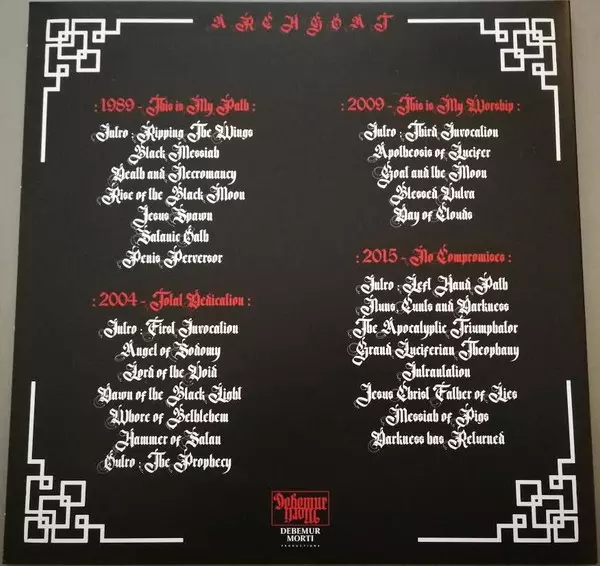 ARCHGOAT
: 1989 - This is My Path :
Intro : Ripping The Wings
Black Messiah
Death and Necromancy
Rise of the Black Moon
Jesus Spawn
Satanic Oath
Penis Perversor
: 2004 - Total Dedication :
Intro : First Invocation
Angel of Sodomy
Lord of the Void
Dawn of the Black Light
Whore of Bethlehem
Hammer of Satan
Outro : The Prophecy
: 2009 - This is My Worship :
Intro : Third Invocation
Apotheosis of Lucifer
Goat and the Moon
Blessed Vulva
Day of Clouds
: 2015 - No Compromises :
Intro : Left Hand Path
Nuns Cunts and Darkness
The Apocalyptic Triumphator
Grand Luciferian Theophany
Intrantation
Jesus Christ Father of Lies
Messiah of Pigs
Darkness has Returned
Debemur
Morti
DEBEMUR
MORTI
PRODUCTIONS